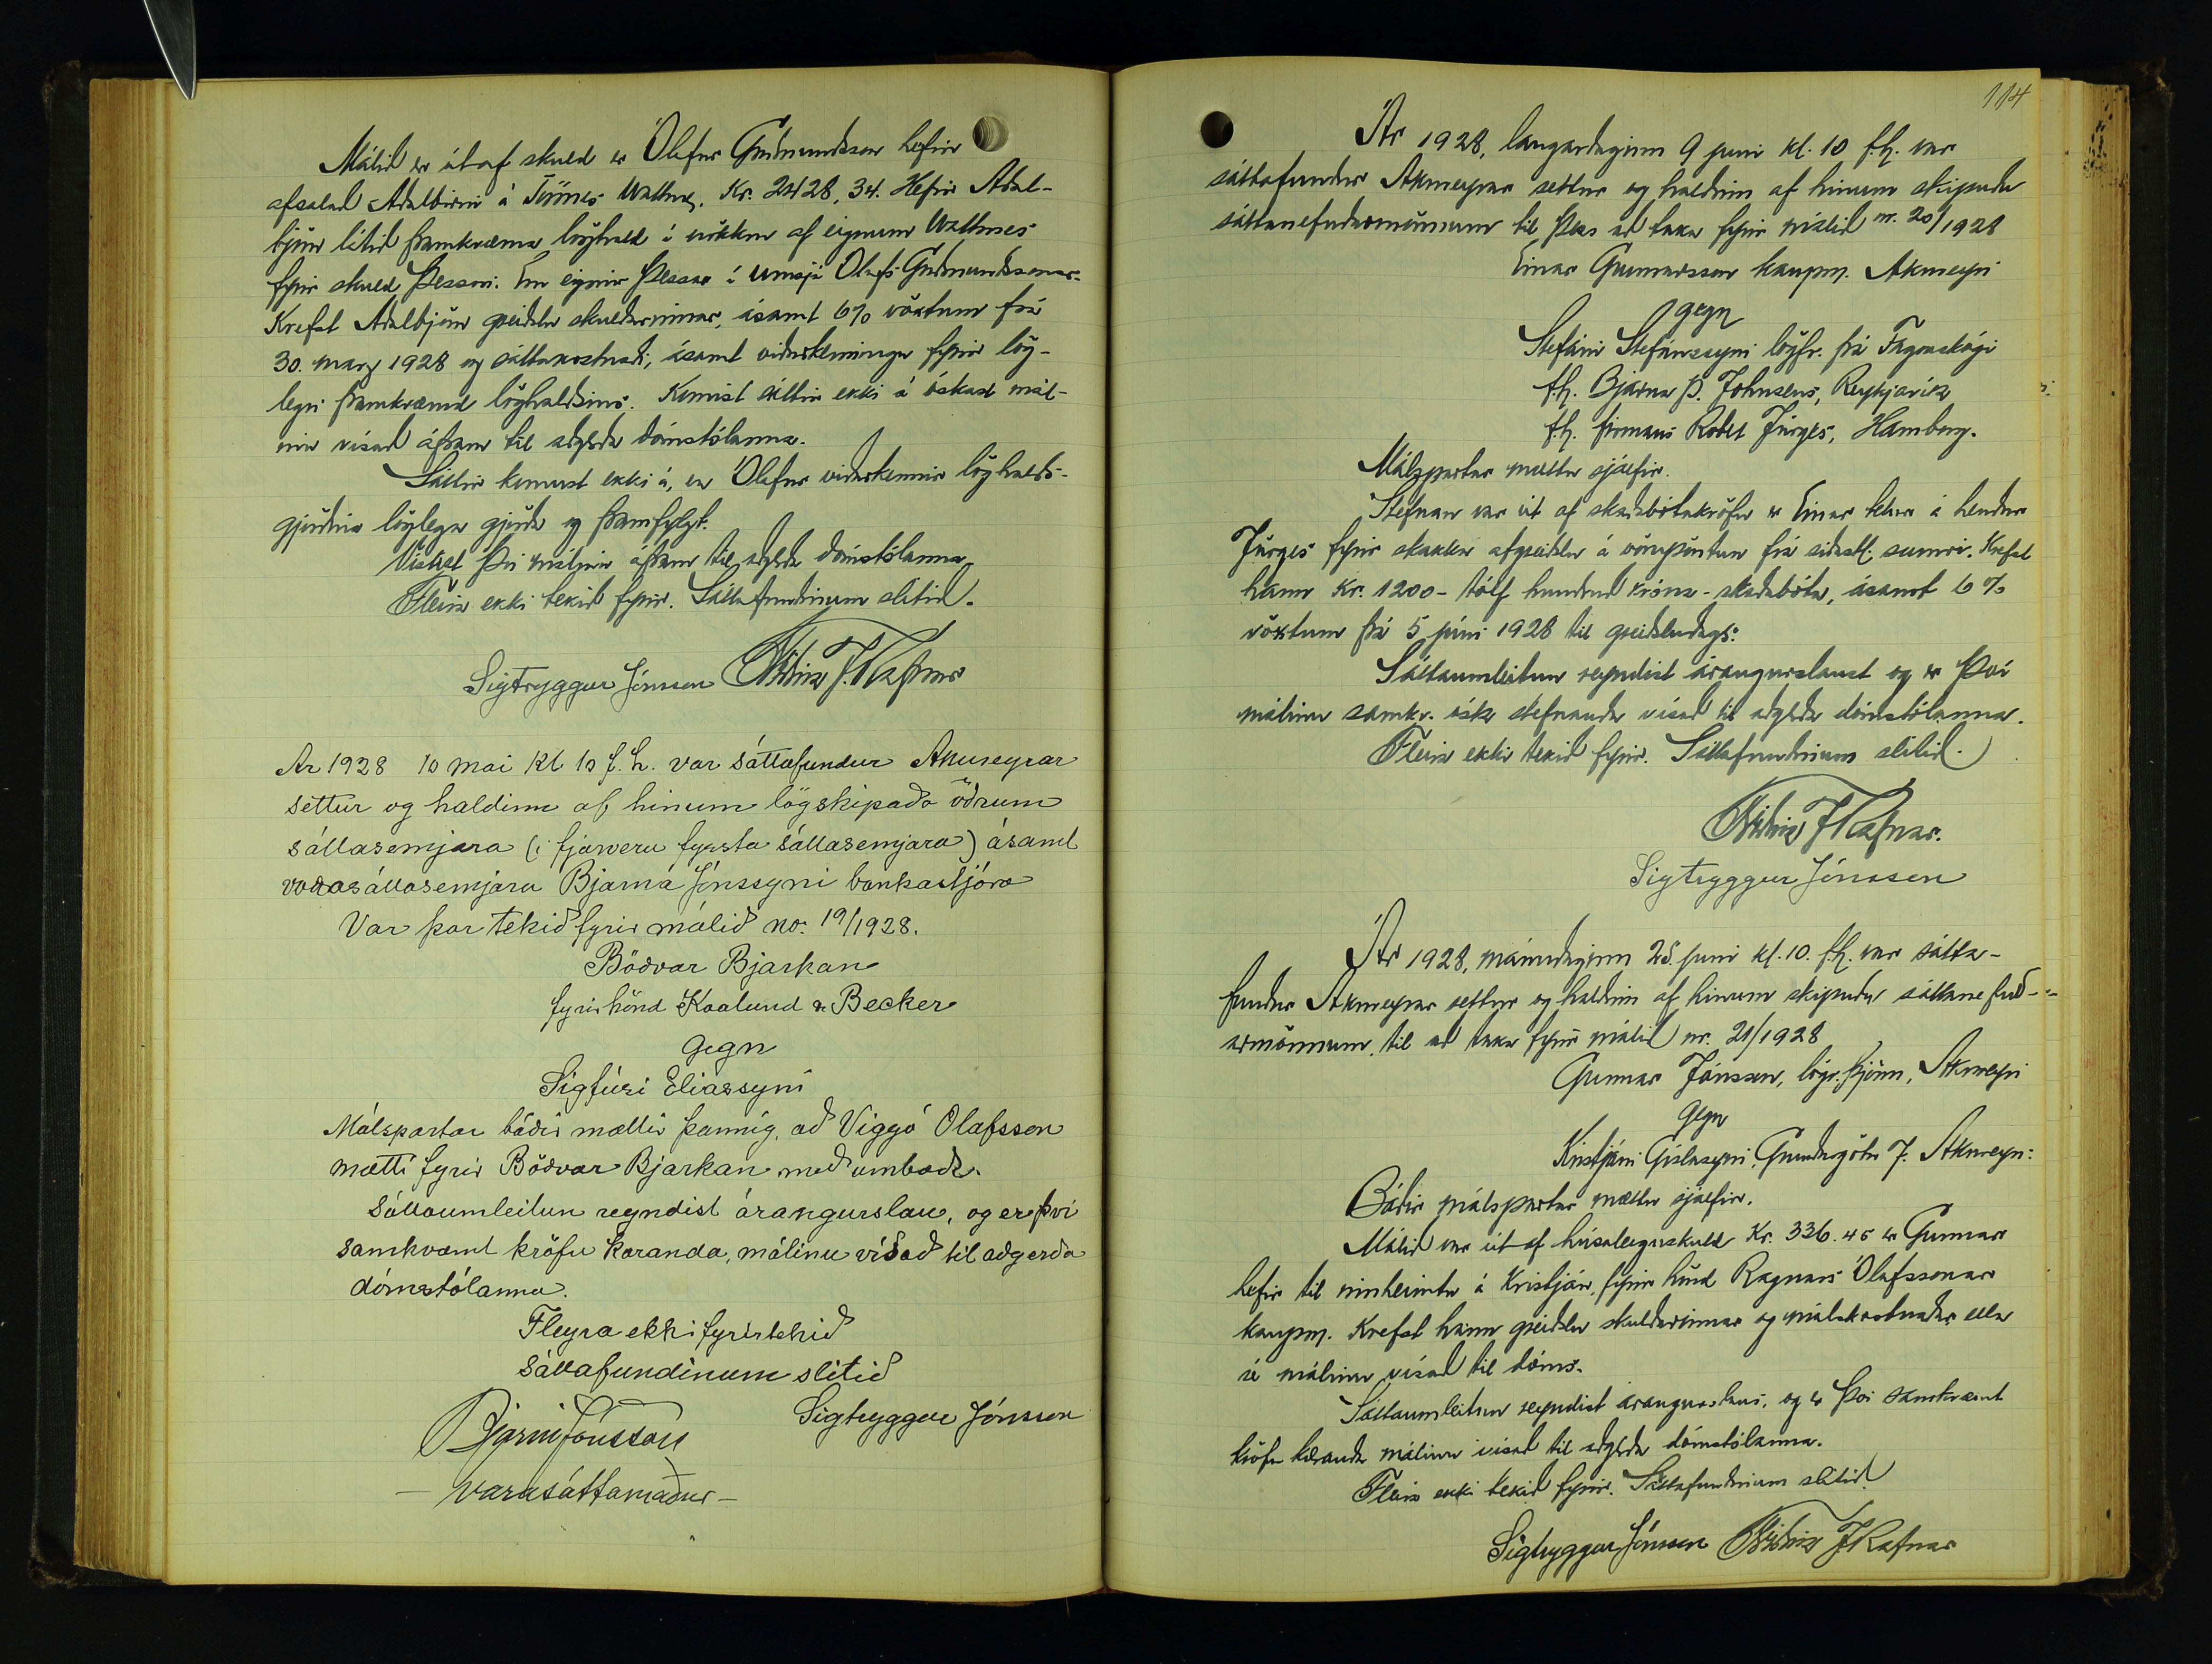 Málið er út af skuld er Ólafur Guðmundsson hefir
afsalað Aðalbirni á Tönnes Wathne, Kr. 2428,34. Hefir Aðal-
björn látið framkvæma löghald í nokkru af eignum Wathnes
fyrir skuld þessari. En eignir þessar í umsjá Ólafs Guðmundssonar.
Krefst Aðalbjörn greiðslu skuldarinnar, ásamt 6% vöxtum frá
30. marz 1928 og sáttakostnaði, ásamt viðurkenningu fyrir lög-
legri framkvæmd löghaldsins. Komist sáttir ekki á óskast mál-
inu vísað áfram til aðgerða dómstólanna.
Sáttir komust ekki á, en Ólafur viðurkennir löghalds-
gjörðina löglega gjörða og framfylgt.
Vísast því málinu áfram til aðgerða dómstólanna
Fleira ekki tekið fyrir. Sáttafundinum slitið.
Sigtryggur Jónsson J. Rafnar
Ár 1928 10 mai kl 10 f.h. var sáttafundur Akureyrar
settur og haldinn af hinum lögskipaða öðrum
sáttasemjara (í fjarveru fyrsta sáttasemjara) ásamt
varasáttasemjara Bjarna Jónssyni bankastjóra
Var þar tekið fyrir málið no: 19/1928.
Böðvar Bjarkan
fyrir hönd Kaalund & Becker
gegn
Sigfúsi Elíassyni
Málspartar báðir mættir þannig, að Viggó Ólafsson
mætti fyrir Böðvar Bjarkan með umboði.
Sáttaumleitun reyndist árangurslau, og er því
samkvæmt kröfu kæranda, málinu vísað til aðgerða
dómstólanna.
Fleyra ekki fyrirtekið
Sáttafundinum slitið
Sigtryggur Jónsson
Bjarni Jónsson
- varasáttamaður -
114
Ár 1928, laugardaginn 9 júni kl. 10 f.h. var
sáttafundur Akureyrar settur og haldinn af hinum skipuðu
sáttanefndarmönnum til þess að taka fyrir málið nr. 20/1928
Einar Gunnarsson kaupm. Akureyri
gegn
Stefáni Stefánssyni lögfr. frá Fagraskógi
f.h. Bjarna Þ. Johnsens, Reykjavík
f.h. firmans Robet Jürges, Hamborg.
Málspartar mættu sjálfir.
Stefnan var út af skaðabótakröfu er Einar telur á hendur
Jürges fyrir skakka afgreiðslu á vörupöntun frá síðastl. sumri. Krefst
hann kr. 1200 - tólf hundruð króna - skaðabóta, ásamt 6%
vöxtum frá 5 júni 1928 til greiðsludags.
Sáttaumleitun reyndist árangurslaust og er því
málinu samkv. ósk stefnanda vísað til aðgerða dómstólanna.
Fleira ekki tekið fyrir. Sáttafundinum slitið.
J Rafnar.
Sigtryggur Jónsson
Ár 1928, mánudaginn 25. júni kl. 10. f.h. var sátta-
fundur Akureyrar settur og haldinn af hinum skipuðu sáttanefnd-
armönnum, til að taka fyrir málið nr. 21/1928
Gunnar Jónsson, lögr.þjónn, Akureyri
gegn
Kristjáni Gíslasyni, Grundargötu 7. Akureyri:
Báðir málspartar mættu sjálfir.
Málið var út af húsaleiguskuld Kr. 336.45 er Gunnar
hefir til innheimtu á Kristján, fyrir hönd Ragnars Ólafssonar
kaupm. Krefst hann greiðslu skuldarinnar og málskostnaðar ella
sé málinu vísað til dóms.
Sáttaumleitun reyndist árangurslaus, og er því samkvæmt
kröfu kæranda málinu vísað til aðgerða dómstólanna.
Fleira ekki tekið fyrir. Sáttafundinum slitið.
Sigtryggur Jónsson J Rafnar